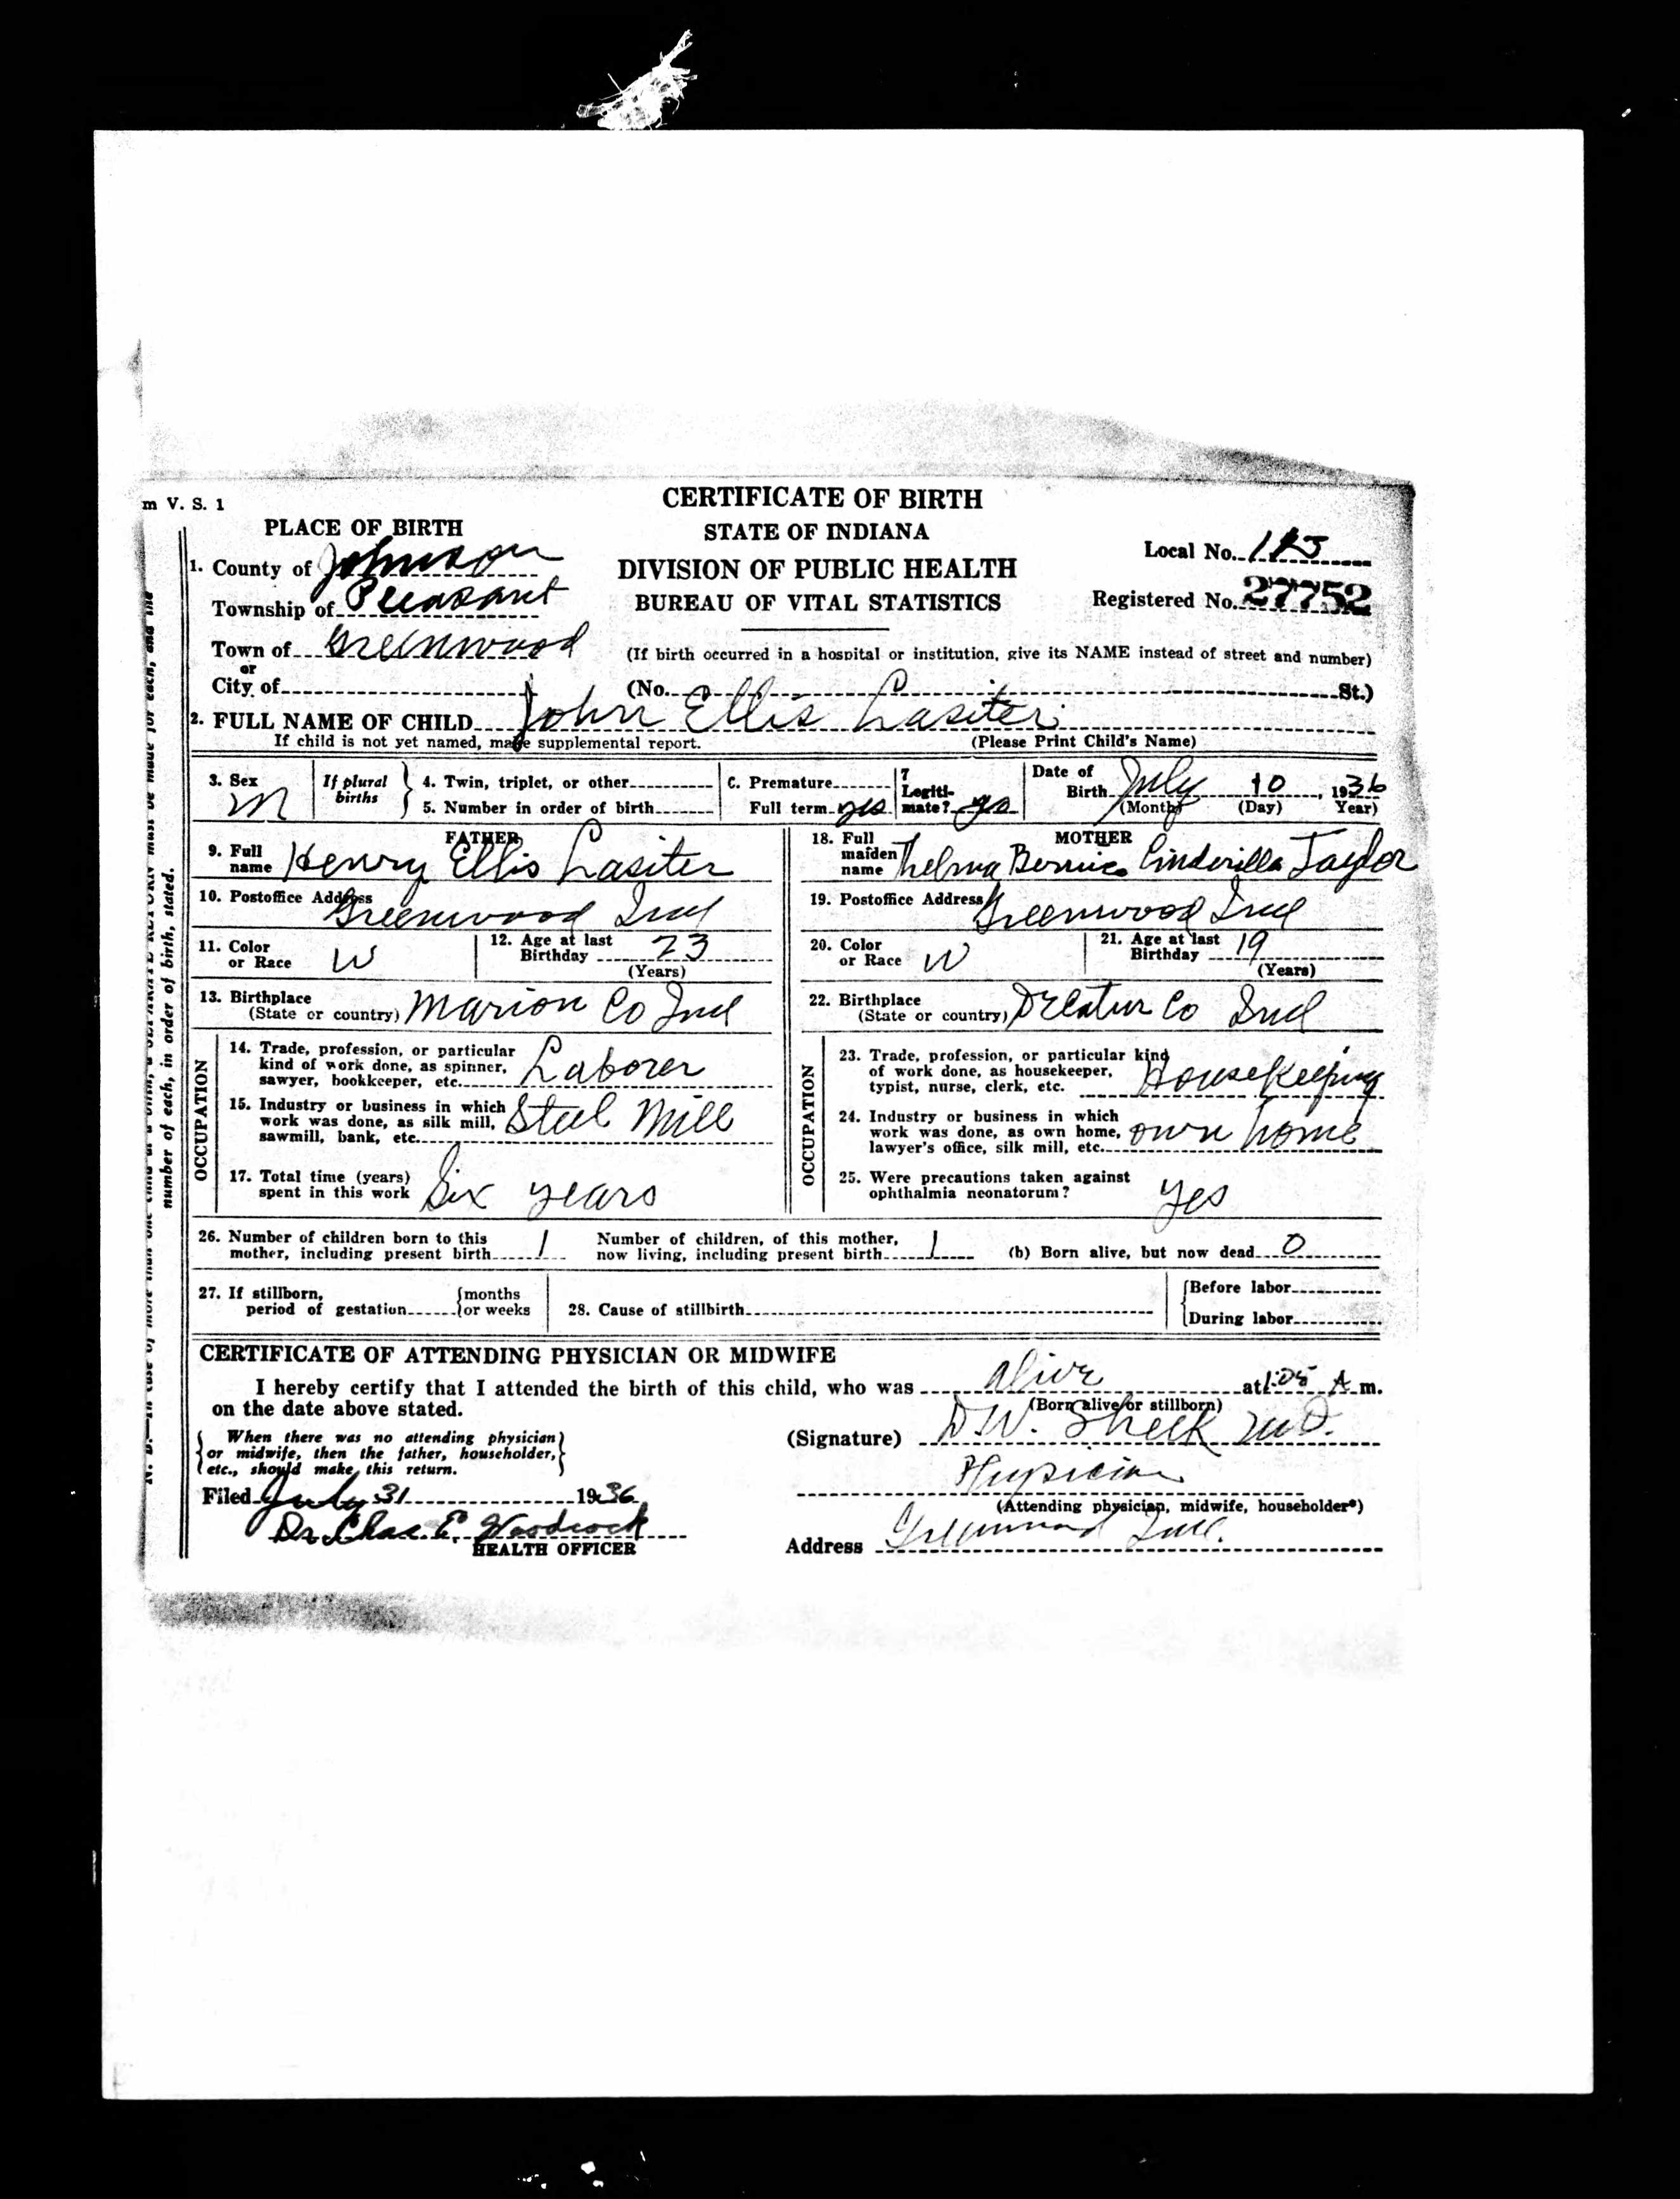 m V. S. 1
CERTIFICATE OF BIRTH
PLACE OF BIRTH
STATE OF INDIANA
1. County of Johnson
DIVISION OF PUBLIC HEALTH
Local No.
Township of Pleasant
BUREAU OF VITAL STATISTICS
Registered No. 27752
Town of Greenwood
(If birth occurred in a hospital or institution, give its NAME instead of street and number)
or
City of
(No. St.)
2. FULL NAME OF CHILD John Ellis Lasiter
If child is not yet named, make supplemental report. (Please Print Child's Name)
3. Sex M
If plural births
4. Twin, triplet, or other
5. Number in order of birth
C. Premature
Full term yes
7 Legiti-
mate? yes
Date of
Birth July 10, 1936
(Month) (Day) Year)
FATHER
9. Full
name Henry Ellis Lasiter
10. Postoffice Address
Greenwood Ind
11. Color
or Race W
12. Age at last
Birthday 23
(Years)
13. Birthplace
(State or country) Marion Co Ind
OCCUPATION
14. Trade, profession, or particular
kind of work done, as spinner,
sawyer, bookkeeper, etc. Laborer
15. Industry or business in which
work was done, as silk mill,
sawmill, bank, etc. Steel Mill
17. Total time (years)
spent in this work Six years
MOTHER
18. Full
maiden
name Thelma Bernice Cinderilla Taylor
19. Postoffice Address
Greenwood Ind
20. Color
or Race W
21. Age at last
Birthday 19
(Years)
22. Birthplace
(State or country) Decatur Co Ind
OCCUPATION
23. Trade, profession, or particular kind
of work done, as housekeeper,
typist, nurse, clerk, etc. Housekeeping
24. Industry or business in which
work was done, as own home,
lawyer's office, silk mill, etc. own home
25. Were precautions taken against
ophthalmia neonatorum? yes
26. Number of children born to this
mother, including present birth 1
Number of children, of this mother,
now living, including present birth 1
(b) Born alive, but now dead 0
27. If stillborn,
period of gestation
{months
or weeks
28. Cause of stillbirth
Before labor
During labor
CERTIFICATE OF ATTENDING PHYSICIAN OR MIDWIFE
I hereby certify that I attended the birth of this child, who was alive at 1:05 A m.
on the date above stated. (Born alive or stillborn)
When there was no attending physician
or midwife, then the father, householder,
etc., should make this return.
(Signature) D.W. Sheek M.D.
Physician
(Attending physician, midwife, householder*)
Filed July 31 1936
Dr. Chas. E. Woodcock
HEALTH OFFICER
Address Greenwood Ind.
number of each, in order of birth, stated.